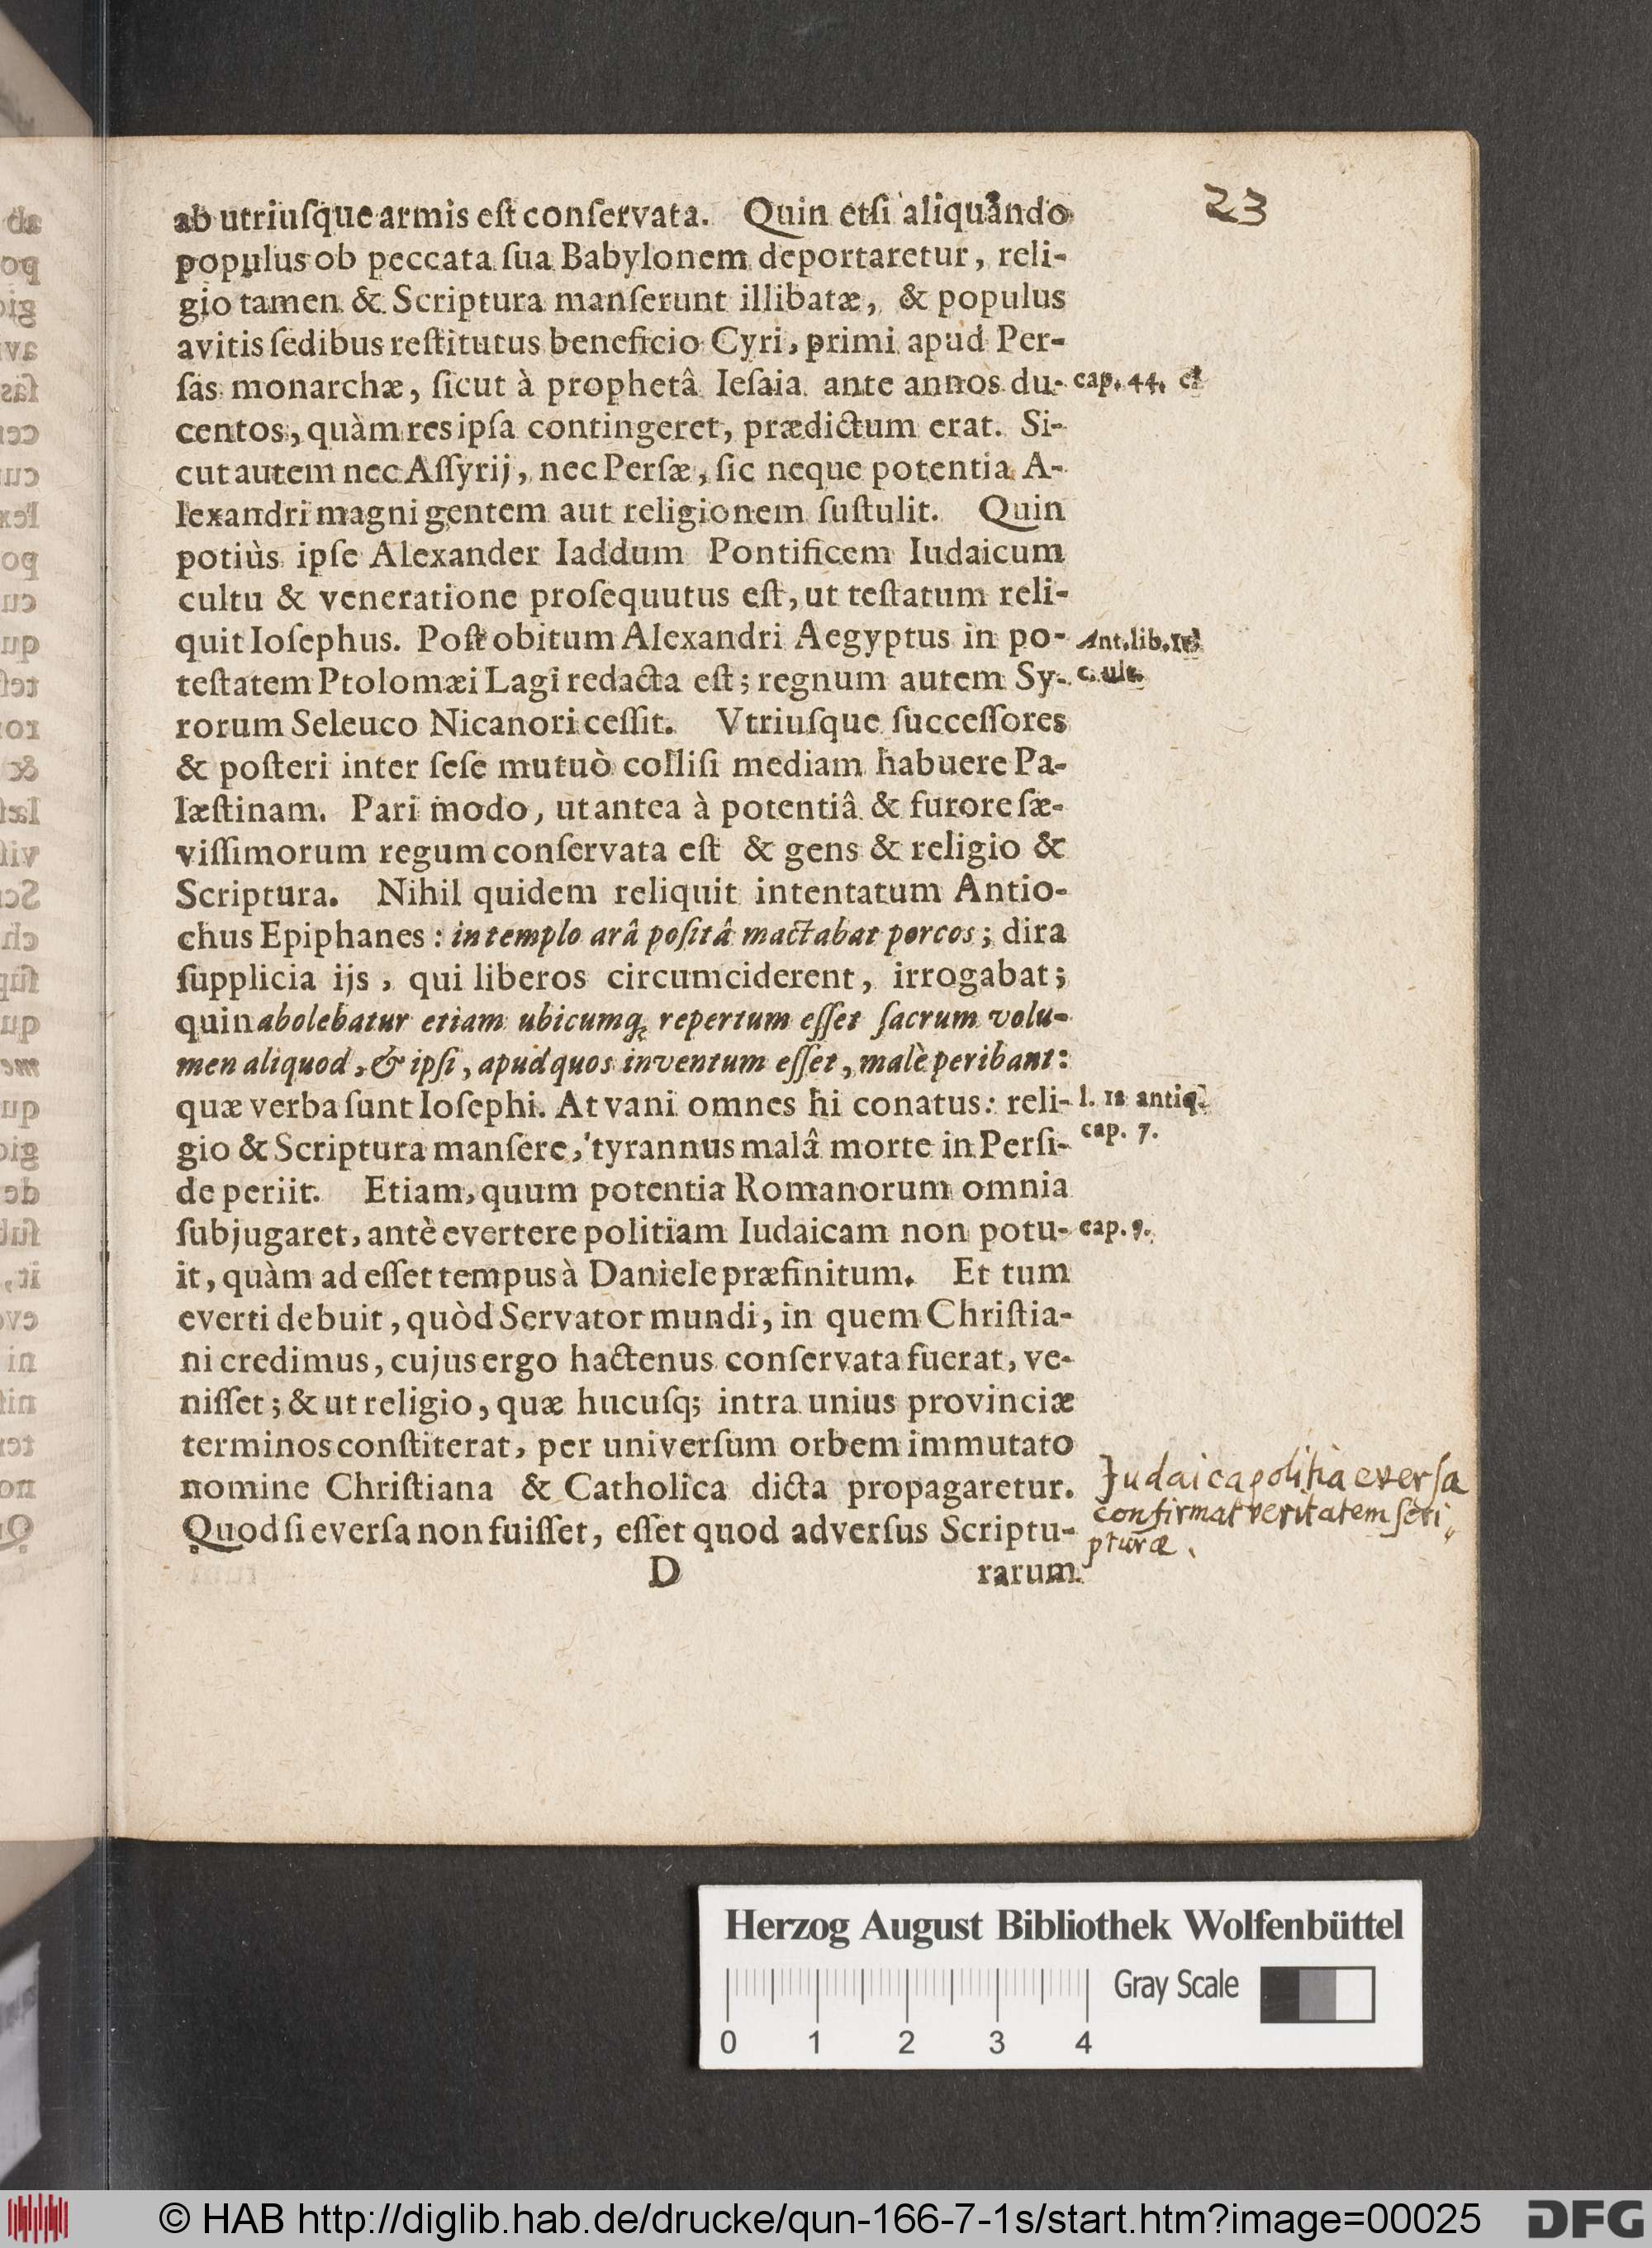 23
ab utriuſque armis eſt conſervata. Quin etſi aliquando
populus ob peccata ſua Babylonem deportaretur, reli-
gio tamen & Scriptura manſerunt illibatæ, & populus
avitis ſedibus reſtitutus beneficio Cyri, primi apud Per-
ſas monarchæ, ſicut à prophetâ Ieſaia ante annos du-
cap. 44. &
centos, quàm res ipſa contingeret, prædictum erat. Si-
cut autem nec Aſſyrij, nec Perſæ, ſic neque potentia A-
lexandri magni gentem aut religionem ſuſtulit. Quin
potiùs ipſe Alexander Iaddum Pontificem Iudaicum
cultu & veneratione proſequutus eſt, ut teſtatum reli-
quit Ioſephus. Poſt obitum Alexandri Aegyptus in po-
Ant. lib.
teſtatem Ptolomæi Lagi redacta eſt; regnum autem Sy-
c. ult.
rorum Seleuco Nicanori ceſſit. Vtriuſque ſucceſſores
& poſteri inter ſeſe mutuò colliſi mediam habuere Pa-
læſtinam. Pari modo, ut antea à potentiâ & furore ſæ-
viſſimorum regum conſervata eſt & gens & religio &
Scriptura. Nihil quidem reliquit intentatum Antio-
chus Epiphanes: in templo arâ poſitâ mactabat porcos; dira
ſupplicia ijs, qui liberos circumciderent, irrogabat;
quin abolebatur etiam ubicumq; repertum eſſet ſacrum volu-
men aliquod, & ipſi, apud quos inventum eſſet, malè peribant:
quæ verba ſunt Ioſephi. At vani omnes hi conatus: reli-
l. 12 antiq.
gio & Scriptura manſere, tyrannus malâ morte in Perſi-
cap. 7.
de periit. Etiam, quum potentia Romanorum omnia
ſubjugaret, antè evertere politiam Iudaicam non potu-
cap. 9.
it, quàm adeſſet tempus à Daniele præfinitum. Et tum
everti debuit, quòd Servator mundi, in quem Chriſtia-
ni credimus, cujus ergo hactenus conſervata fuerat, ve-
niſſet; & ut religio, quæ hucuſq; intra unius provinciæ
terminos conſtiterat, per univerſum orbem immutato
nomine Chriſtiana & Catholica dicta propagaretur.
Quod ſi everſa non fuiſſet, eſſet quod adverſus Scriptu-
Judaica politia everſa
confirmat veritatem ſcri
pturæ.
D
rarum
Herzog August Bibliothek Wolfenbüttel
Gray Scale
0 1 2 3 4
© HAB http://diglib.hab.de/drucke/qun-166-7-1s/start.htm?image=00025
DFG